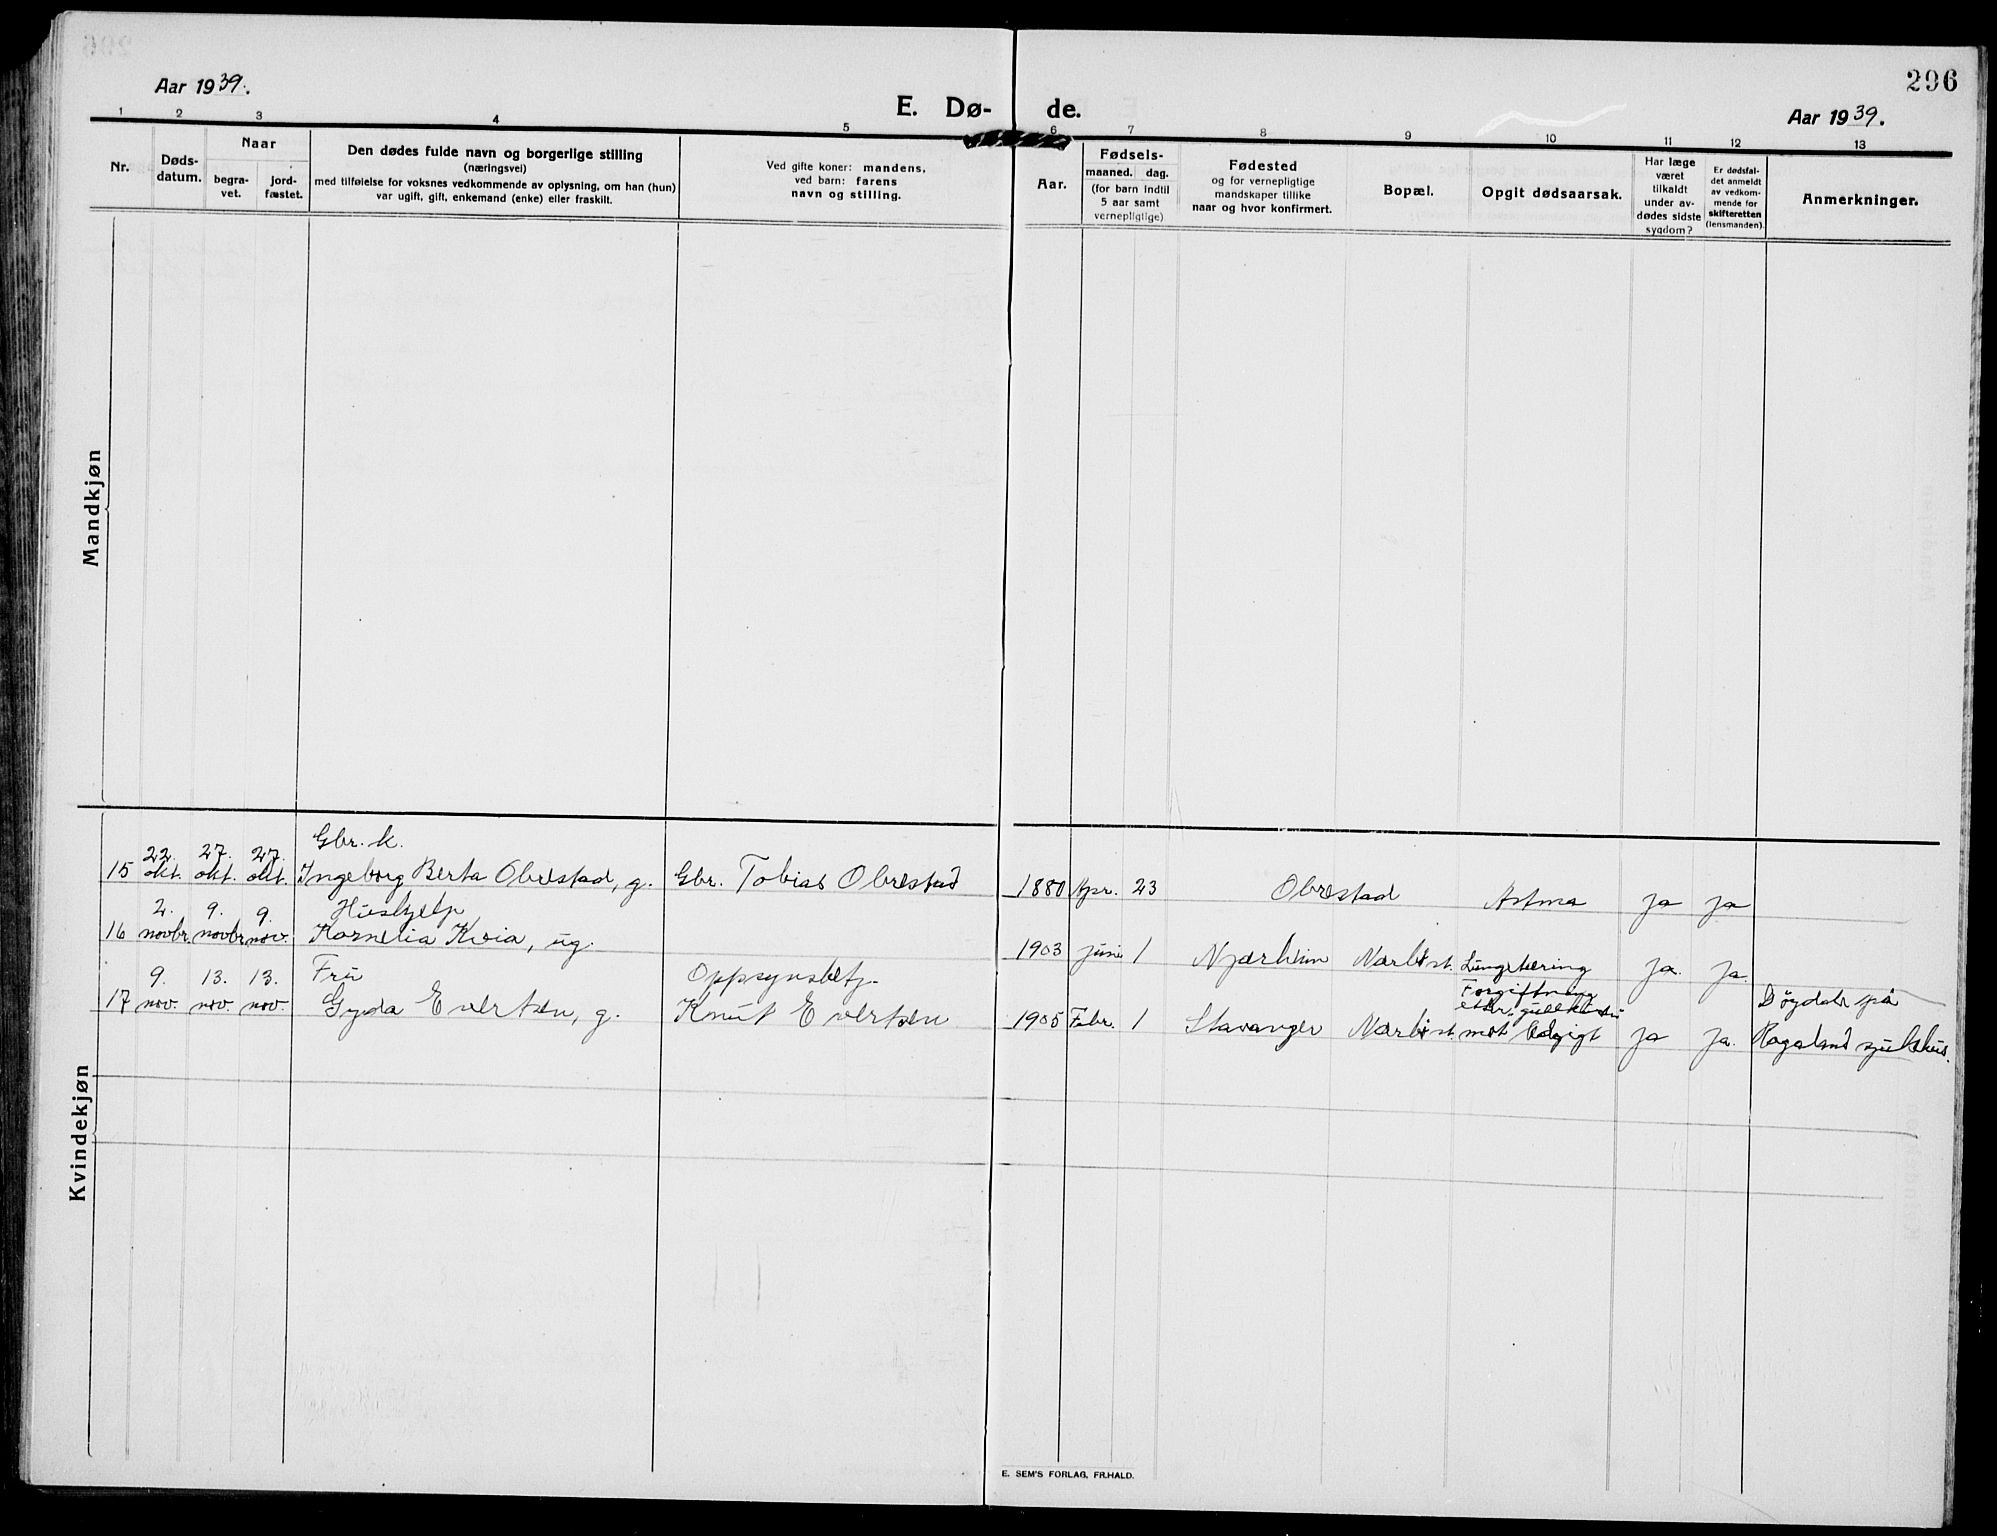 296
Aar 1939.
E. Dø-
de.
Aar 1939.
1 2 3 4 5 6 7 8 9 10 11 12 13
Nr.
Døds-
datum.
Naar
begra-
vet.
jord-
fæstet.
Den dødes fulde navn og borgerlige stilling
(næringsvei)
med tilføielse for voksnes vedkommende av oplysning, om han (hun)
var ugift, gift, enkemand (enke) eller fraskilt.
Ved gifte koner: mandens,
ved barn: farens
navn og stilling.
Aar.
Fødsels-
maaned. dag.
(for barn indtil
5 aar samt
vernepligtige)
Fødested
og for vernepligtige
mandskaper tillike
naar og hvor konfirmert.
Bopæl.
Opgit dødsaarsak.
Har læge
været
tilkaldt
under av-
dødes sidste
sygdom?
Er dødsfal-
det anmeldt
av vedkom-
mende for
skifteretten
(lensmanden).
Anmerkninger.
Mandkjøn
Kvindekjøn
22. 27. 27. Gbr. k.
15 okt. okt. okt. Ingeborg Berta Obrestad, g. Gbr. Tobias Obrestad 1880 Apr. 23 Obrestad Astma ja ja
2. 9. 9. Hushjelp
16 novbr. novbr. nov. Kornelia Kvia, ug. 1903 juni 1 Njærheim Nærbøst. Lungetæring ja. ja.
9. 13. 13. Fru Oppsynsbetj. Forgiftning
17 nov. nov. nov. Gyda Evertsen, g. Knut Evertsen 1905 Febr. 1 Stavanger Nærbøst. etter gullkur mot ledgigt ja ja. Døydde på
Rogaland sjukehus.
E. SEM'S FORLAG, FR.HALD.